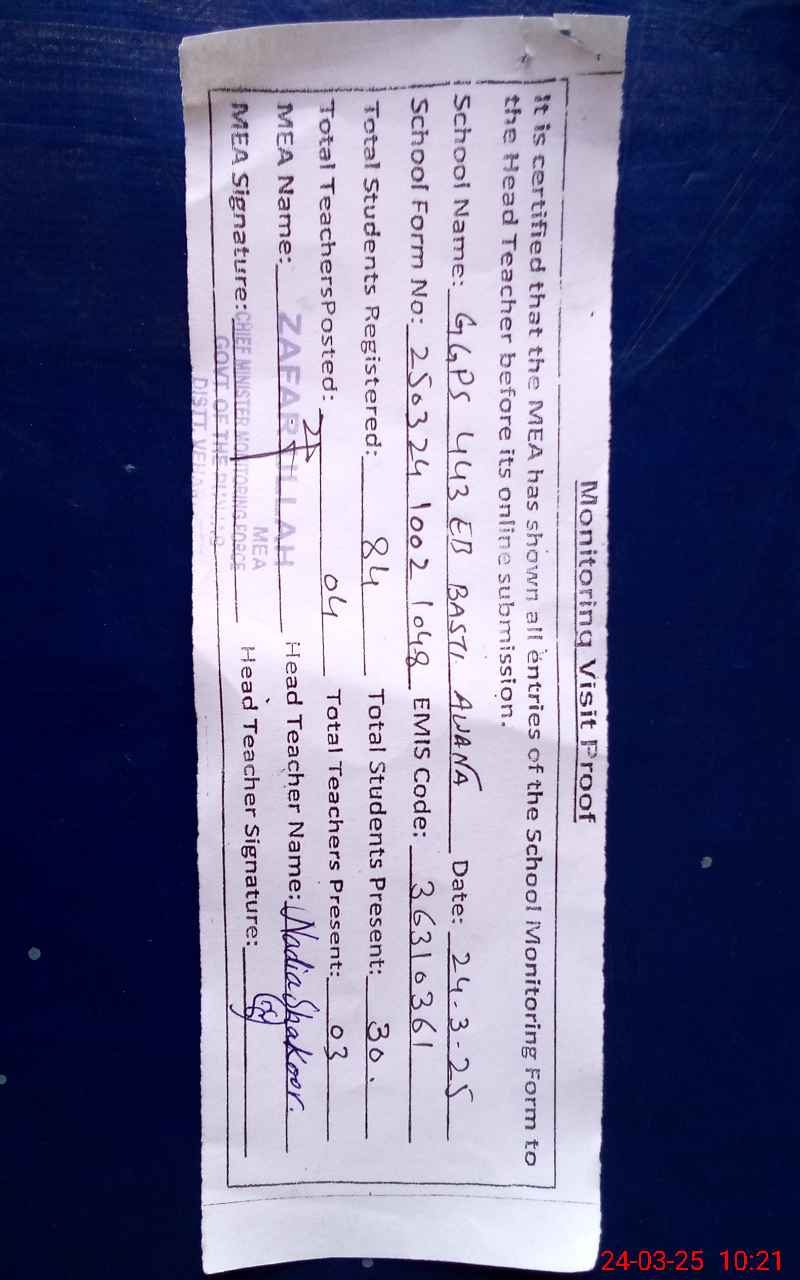 Monitoring Visit Proof
It is certified that the MEA has shown all entries of the School Monitoring Form to
the Head Teacher before its online submission.
School Name: GGPS 443 EB BASTI AWANA Date: 24-3-25
School Form No: 250324 1002 1048 EMIS Code: 36310361
Total Students Registered: 84 Total Students Present: 30.
Total TeachersPosted: 04 Total Teachers Present: 03
MEA Name: ZAFAR ULLAH Head Teacher Name: Nadia Shakoor.
MEA
MEA Signature: CHIEF MINISTER MONITORING FORCE Head Teacher Signature:
GOVT OF THE PUNJAB
DISTT VEHARI
24-03-25 10:21